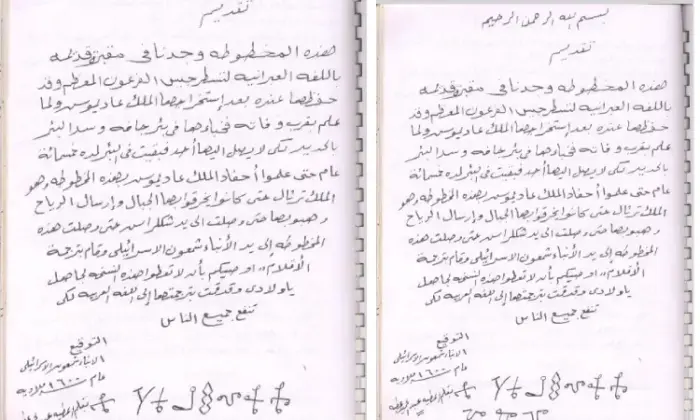 تقديم
هذه المخطوطه وجدناها في مقبرة قديمه
باللغه العبرانيه لنسطرجس الفرعون المعظم وقد
حفظها عنده بعد إستخراجها الملك عاديوس ولما
علم بقرب وفاته فخباءها في بئر جافه وسد البئر
بالحديد لكي لا يصل اليها أحد فبقيت في البئر لمده خمسمائة
عام حتى علموا أحفاد الملك عاديوس بهذه المخطوطه وهو
الملك ترتال حتى كانوا يخرقوا بها الجبال وإرسال الرياح
وهبوبها حتى وصلت الى يد شكلراس حتى وصلت هذه
المخطوطه إلى يد الأنباء شمعون الاسرائيلى وقام بترجمة
الأقلام، اوصيكم بأن لا تعطوا هذه النسخه لجاهل
ياولادى وقد قمت بترجمتها إلى اللغه العربيه لكى
تنفع جميع الناس
التوقيع
الانباء شمعون الاسرائيلى
عام ١٦٠٠ ميلاديه
بسم الله الرحمن الرحيم
تقديم
هذه المخطوطه وجدناها في مقبرة قديمه
باللغه العبرانيه لنسطرجس الفرعون المعظم وقد
حفظها عنده بعد إستخراجها الملك عاديوس ولما
علم بقرب وفاته فخباءها في بئر جافه وسد البئر
بالحديد لكي لا يصل اليها أحد فبقيت في البئر لمده خمسمائة
عام حتى علموا أحفاد الملك عاديوس بهذه المخطوطه وهو
الملك ترتال حتى كانوا يخرقوا بها الجبال وإرسال الرياح
وهبوبها حتى وصلت الى يد شكلراس حتى وصلت هذه
المخطوطه إلى يد الأنباء شمعون الاسرائيلى وقام بترجمة
الأقلام، اوصيكم بأن لا تعطوا هذه النسخه لجاهل
ياولادى وقد قمت بترجمتها إلى اللغه العربيه لكى
تنفع جميع الناس
التوقيع
الانباء شمعون الاسرائيلى
عام ١٦٠٠ ميلاديه